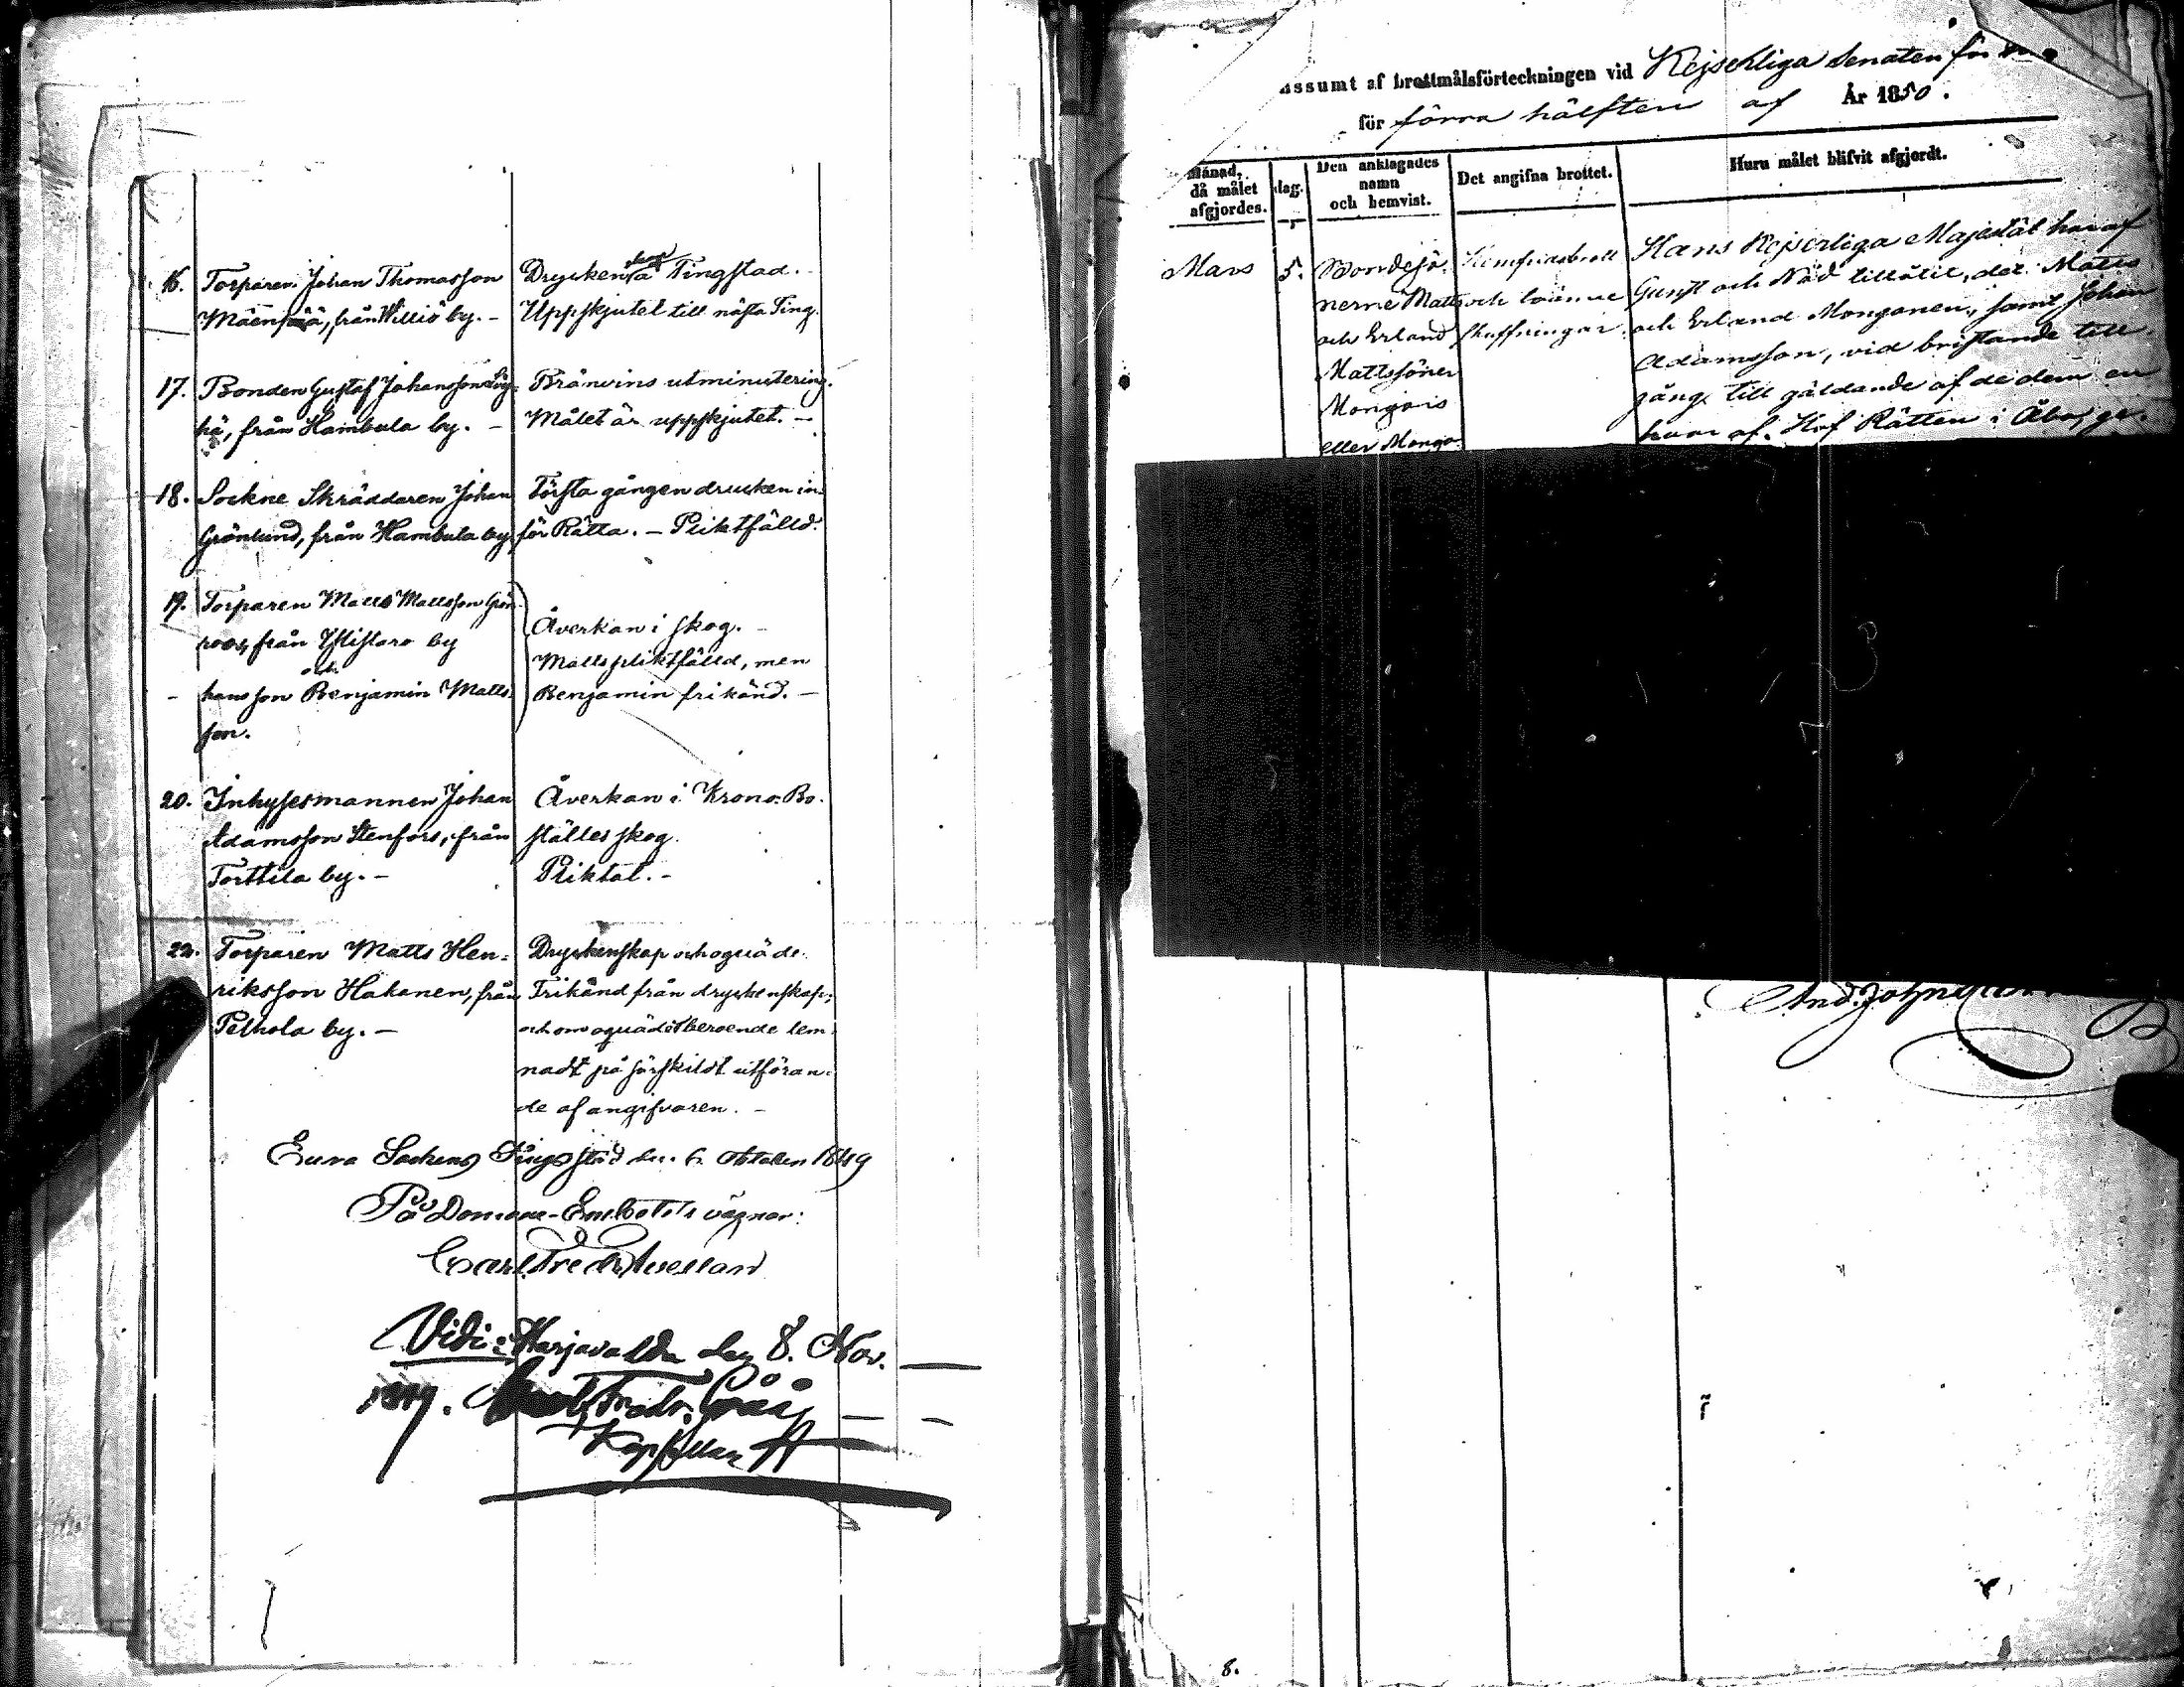 16. Torparen Johan Thomasson
från Williö by. -
Tingstad.
Uppskjutet till nästa Ting.
17. Bonden Gustaf Johansson
från Hambula by. -
Bränvins utminutering.
Målet är uppskjutet. -
18. Sockne Skräddaren Johan
Grönlund, från Hambula by,
Första gången drucken in-
för Rätta. - Pliktfälld.
19. Torparen Matts Mattsson Grön-
roos, från by
och
hans son Benjamin Matts-
son.
Åverkan i skog. -
Matts pliktfälld, men
Benjamin frikänd. -
20. Inhysesmannen Johan
Adamsson Stenfors, från
Torttila by. -
Åverkan i Krono-Bo-
ställes skog.
Pliktat. -
22. Torparen Matts Hen-
riksson Hakanen, från
Pelhola by. -
Dryckenskap och oquäde.
Frikänd från dryckenskap;
och om oquädet beroende lem-
nadt på särskildt utföran-
de af angifvaren. -
Eura Sockens Tingsstad den 6. October 1849
På Domare-Embetets vägnar:
Carl Fredr. Avellan
Vidi: Harjavalda den 8. Nov.
1849. Fredr.
Kapellan
assumt af brottmålsförteckningen vid Kejserliga Senaten för
för förra hälften af År 1850.
Månad, då målet afgjordes.
dag.
Den anklagades namn och hemvist.
Det angifna brottet.
Huru målet blifvit afgjordt.
Mars 5.
Bondesö-
nerne Matts
och Erland
Mattssöner
Mongois
eller Mongo-
Hemfridsbrott
och
skuffningar.
Hans Kejserliga Majestät har af
Gunst och Nåd tillåtit, det Matts
och Erland Monganen, samt Johan
Adamsson, vid bristande till-
gång till gäldande af de dem en
hvar af Hof Rätten i Åbo, ge-
And. Johnsson
8.